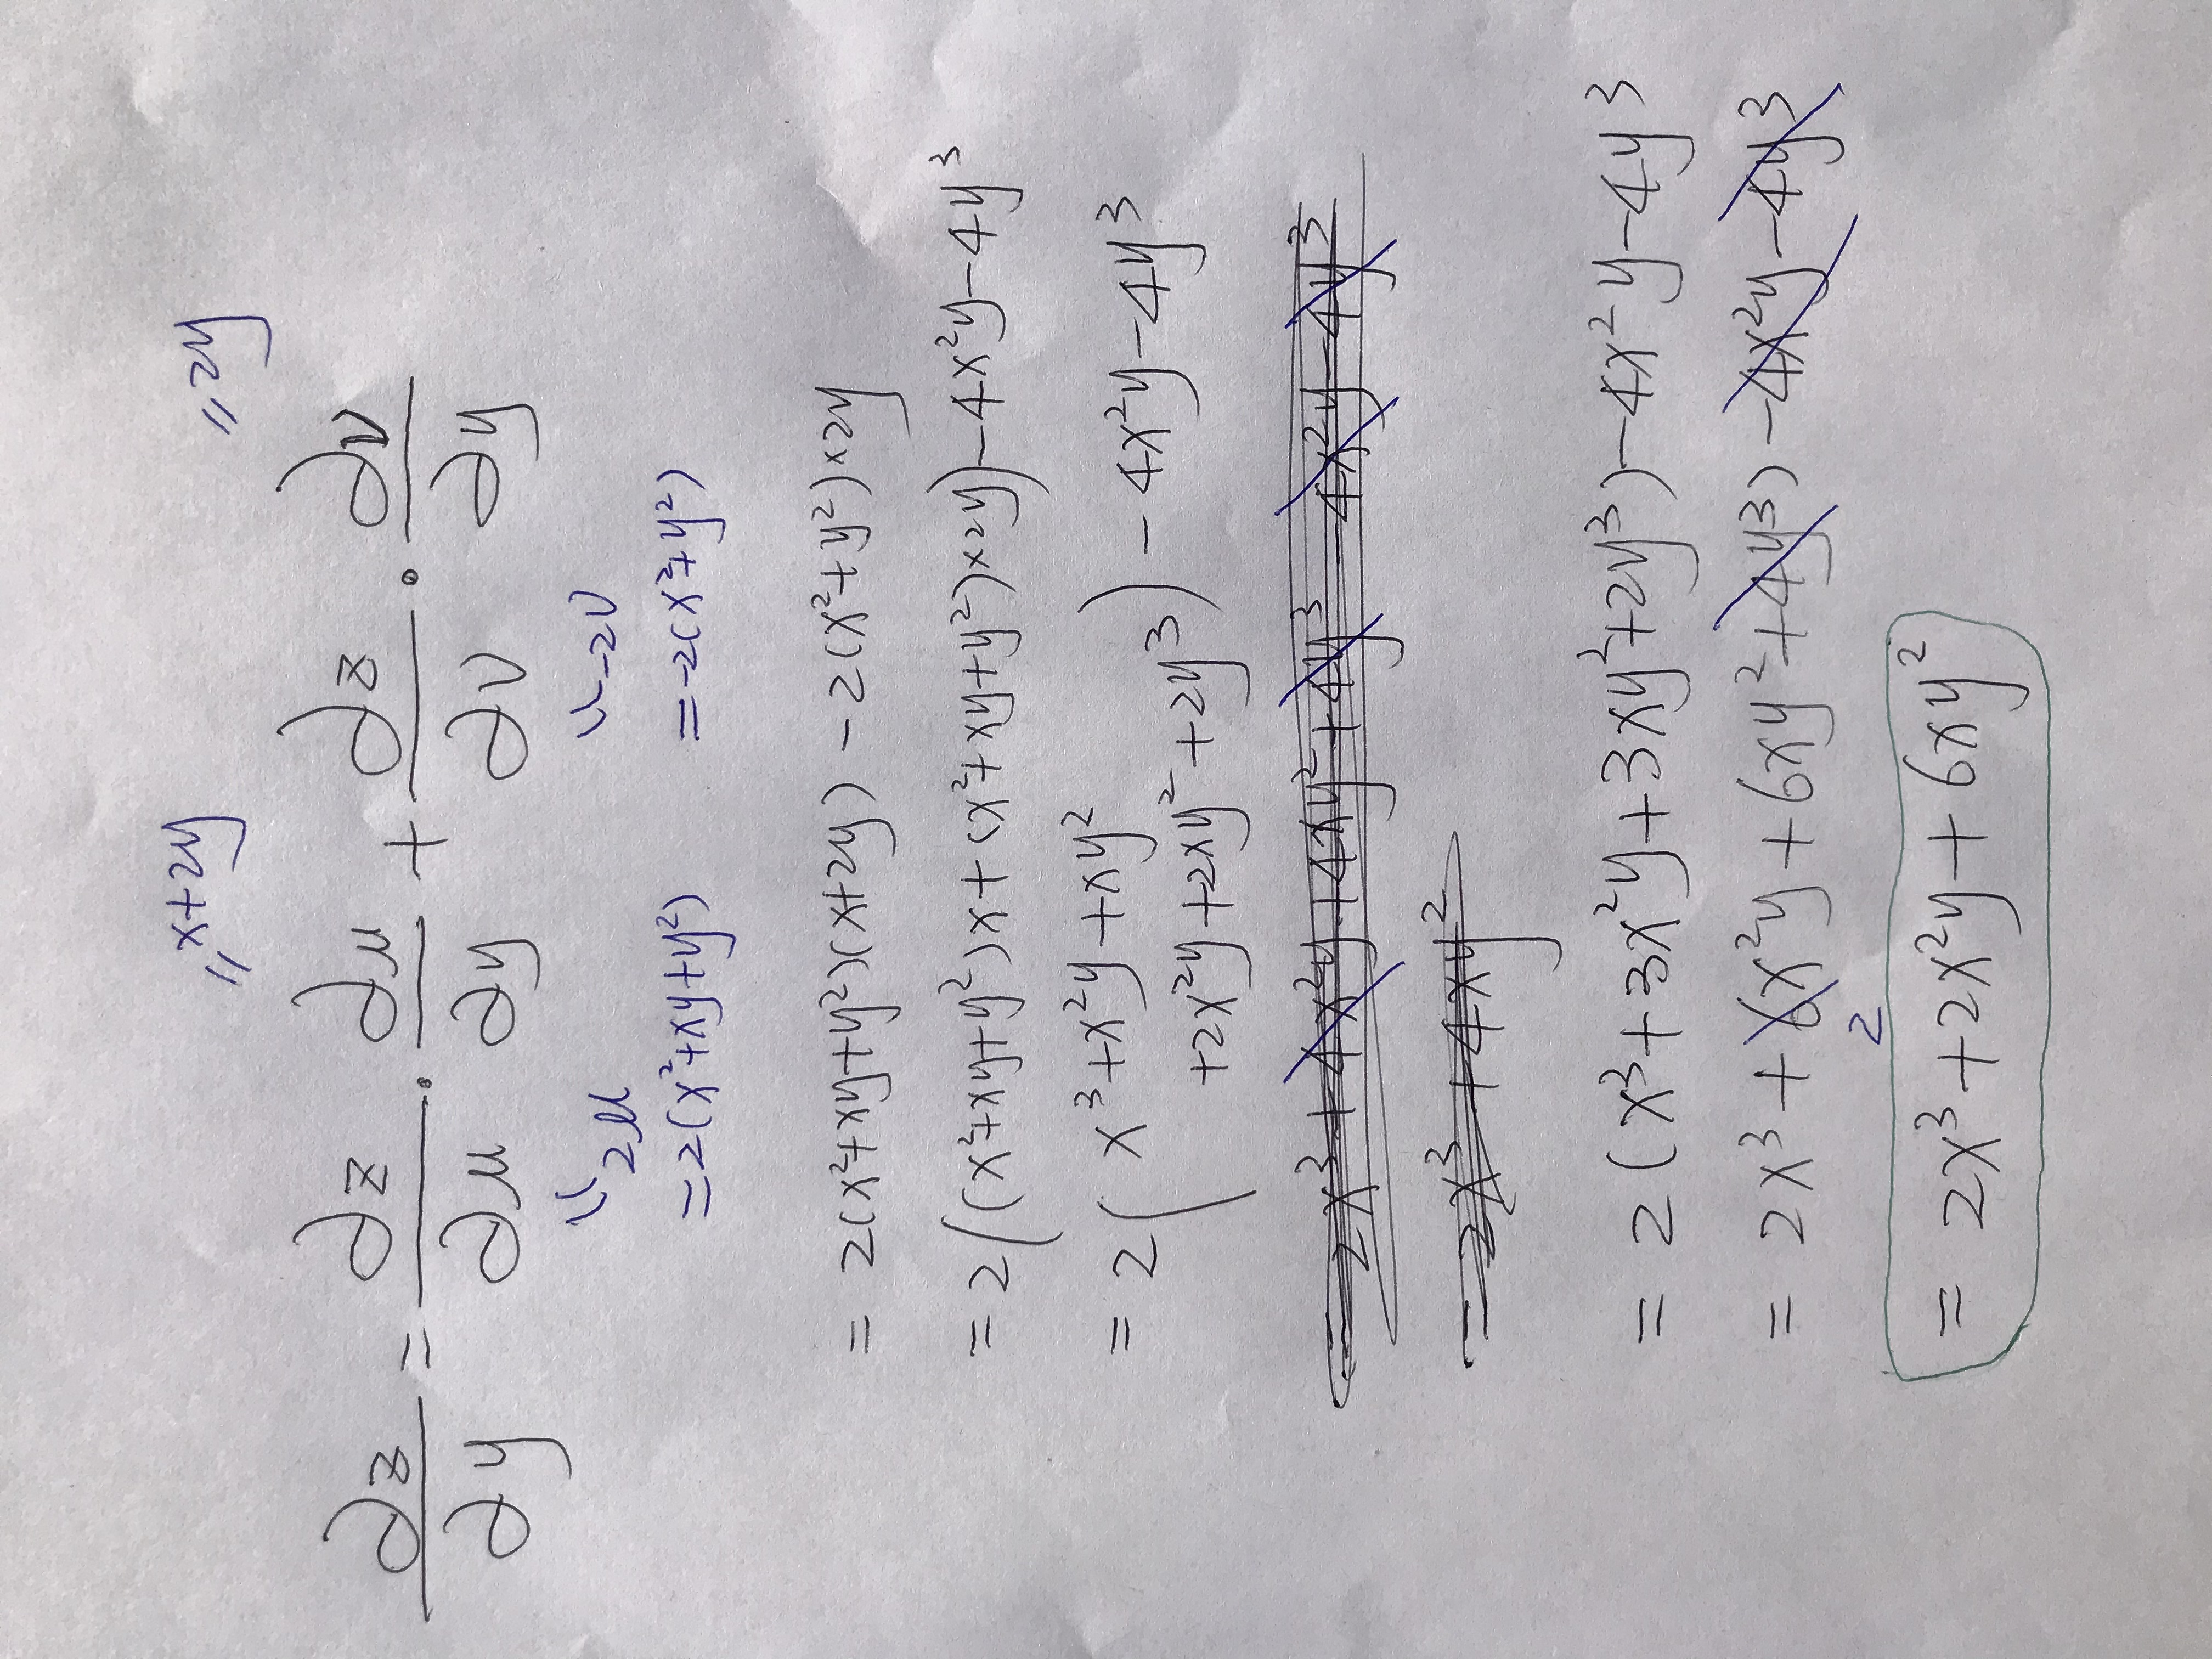 = x+2y = 2y
∂z/∂y = ∂z/∂μ · ∂μ/∂y + ∂z/∂ν · ∂ν/∂y
= 2μ = -2ν
= 2(x²+xy+y²) = -2(x²+y²)
= 2(x²+xy+y²)(x+2y) - 2(x²+y²)×2y
= 2((x²+xy+y²)x + (x²+xy+y²)×2y) - 4x²y - 4y³
= 2( x³+x²y+xy²
+2x²y+2xy²+2y³ ) - 4x²y - 4y³
= 2x³ + 4x²y + 4xy² + 4y³ - 4x²y - 4y³
= 2x³ + 4xy²
= 2(x³+3x²y+3xy²+2y³) - 4x²y - 4y³
= 2x³ + 6x²y + 6xy² + 4y³) - 4x²y - 4y³
2
= 2x³ + 2x²y + 6xy²